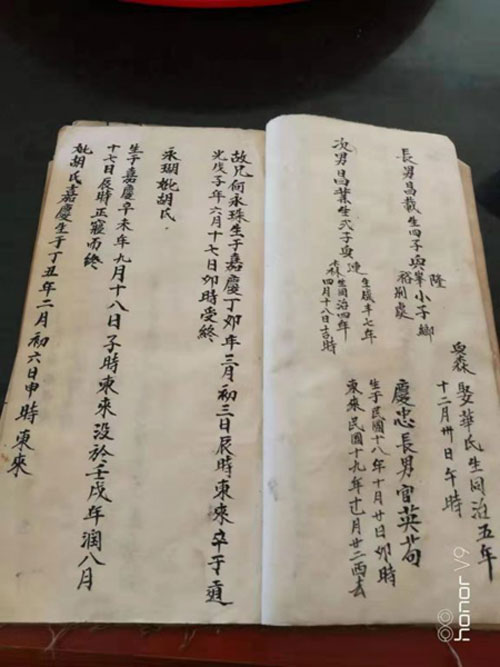 與森娶華氏生同治五年
十二月卅日午時
慶忠長男官英苟
生于民國十八年十月廿日卯時
東來民國十九年十一月廿二西去
隆
長男昌載生四子與舉小子鄉
裕荊處
次男昌業生弍子與漣
生咸丰七年
森生同治四年
四月十八日吉時
故兄何永珠生于嘉慶丁卯年三月初三日辰時東來卒于道
光戊子年六月十七日卯時受終
永瑚妣胡氏
生于嘉慶辛未年九月十八日子時東來没於壬戌年潤八月
十七日辰時正寢而終
妣胡氏嘉慶生于丁丑年二月初六日申時東來
honor V9